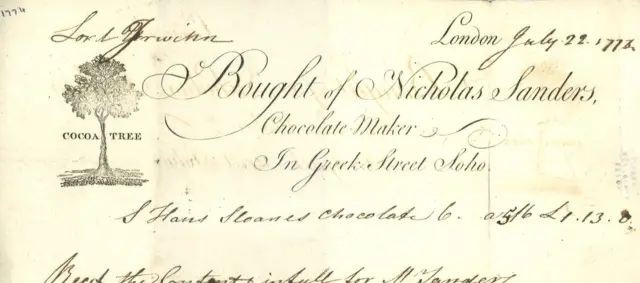 1774
Lord
London July 22. 1773
Bought of Nicholas Sanders,
COCOA TREE
Chocolate Maker
In Greek Street Soho.
S Hans Sloanes Chocolate 6. a 5/6 £1.13.0
Reed the Contents in full for Mr Sanders